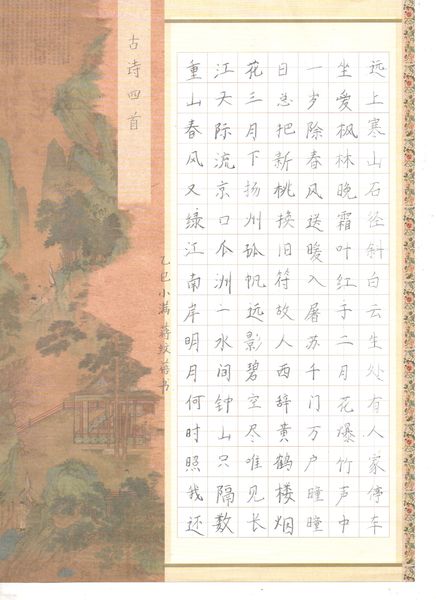 远上寒山石径斜白云生处有人家停车
坐爱枫林晚霜叶红于二月花爆竹声中
一岁除春风送暖入屠苏千门万户瞳瞳
日总把新桃换旧符故人西辞黄鹤楼烟
花三月下扬州孤帆远影碧空尽唯见长
江天际流京口瓜洲一水间钟山只隔数
重山春风又绿江南岸明月何时照我还
古诗四首
乙巳小满 蒋书